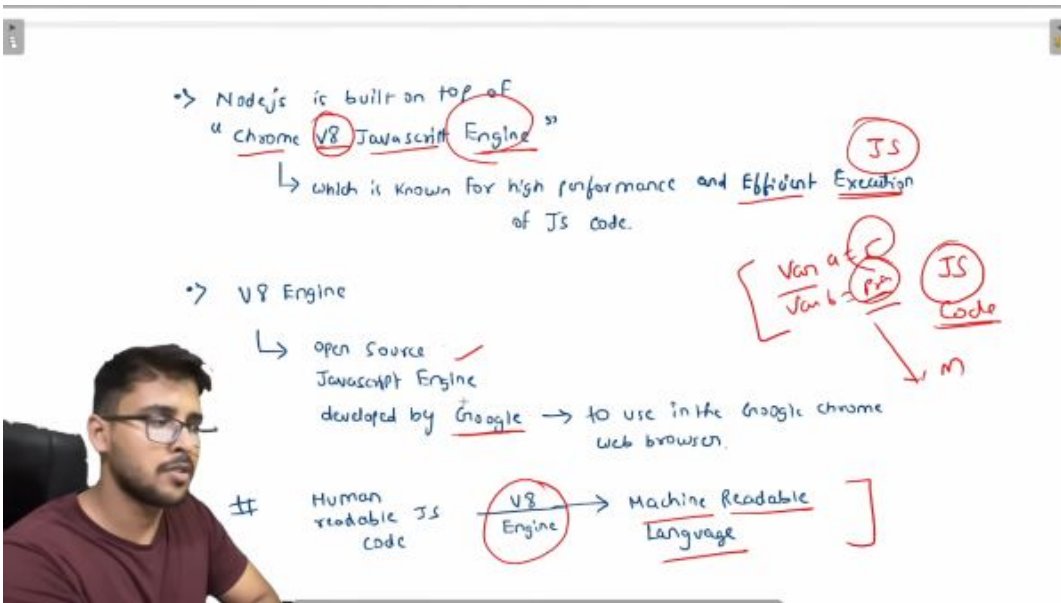 •> Nodejs is built on top of
" Chrome V8 Javascript Engine "
JS
↳ which is known for high performance and Efficient Execution
of JS code.
Var a =
Var b =
JS
Code
•> V8 Engine
M
↳ open source
Javascript Engine
developed by Google → to use in the Google chrome
web browser.
# Human readable JS code V8 Engine → Machine Readable Language